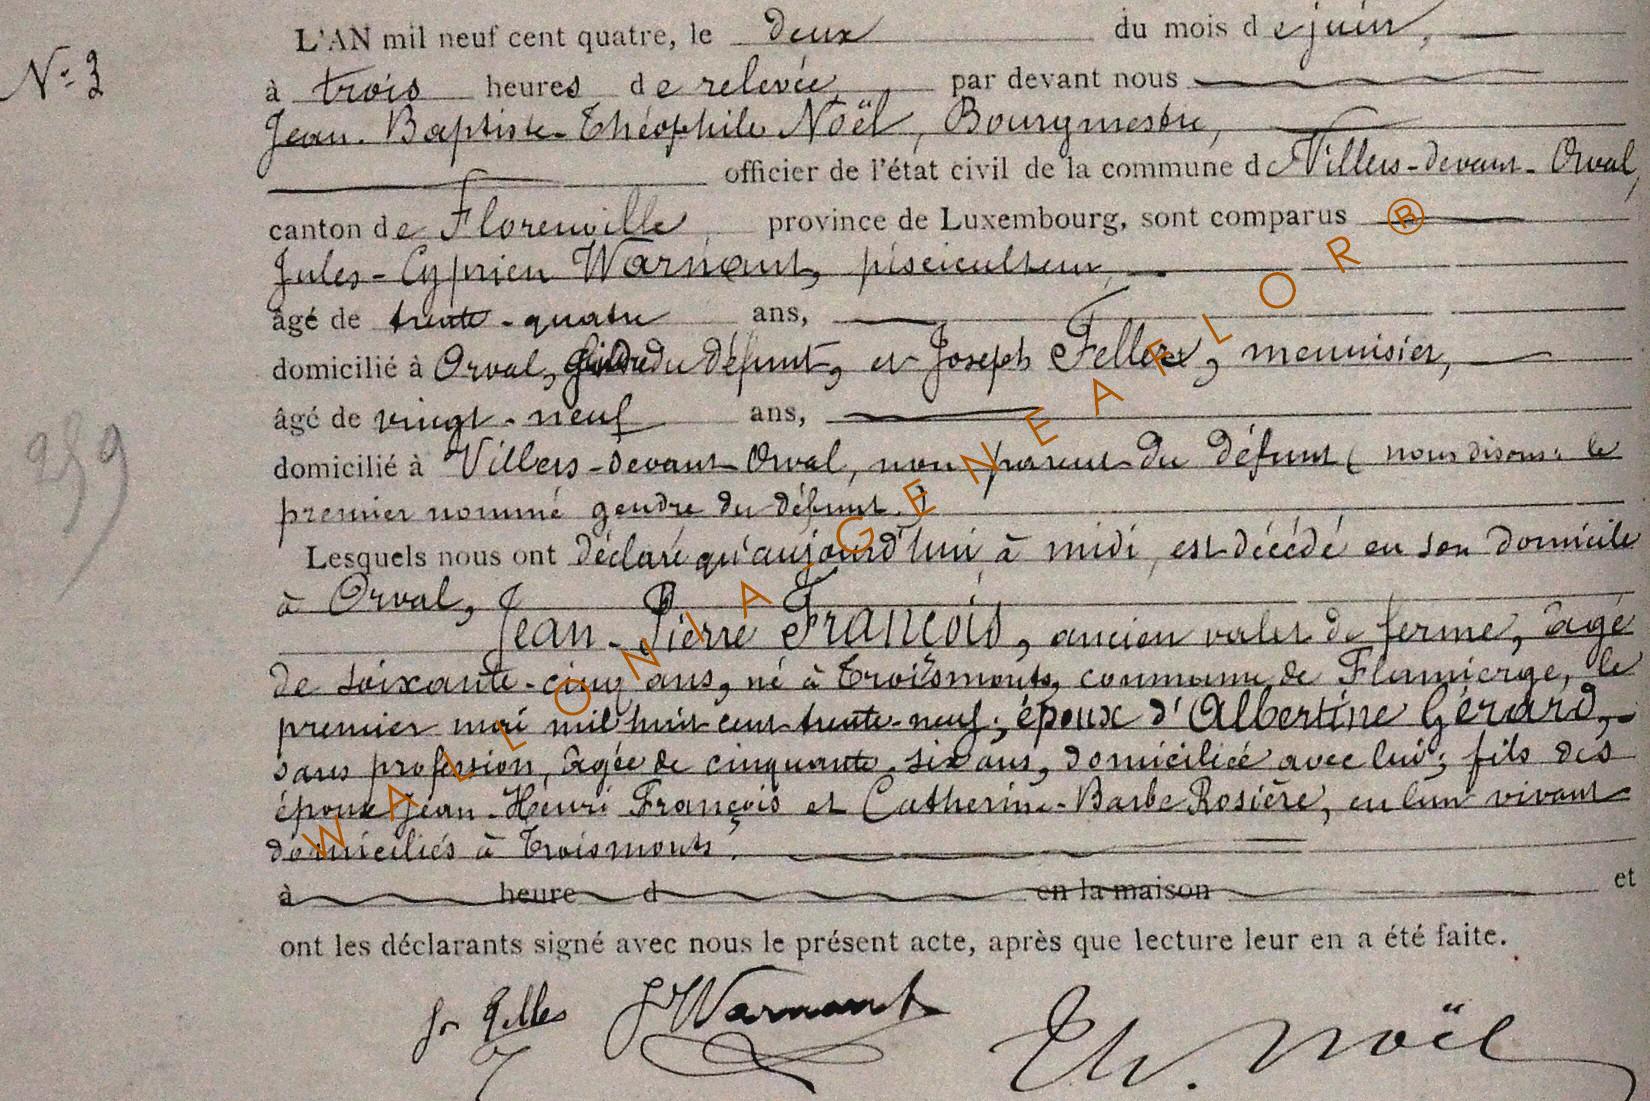 N° 3
L'AN mil neuf cent quatre, le deux du mois de juin,
à trois heures de relevée, par devant nous
Jean-Baptiste-Théophile Noël, Bourgmestre,
officier de l'état civil de la commune de Villers-devant-Orval,
canton de Florenville, province de Luxembourg, sont comparus
Jules-Cyprien Warnant, pisciculteur,
âgé de trente-quatre ans,
domicilié à Orval, du défunt, et Joseph menuisier,
âgé de vingt-neuf ans,
domicilié à Villers-devant-Orval, non parent du défunt (nous disons: le
premier nommé gendre du défunt.)
Lesquels nous ont déclaré qu'aujourd'hui à midi, est décédé en son domicile
à Orval,
Jean-Pierre François, ancien valet de ferme, âgé
de soixante-cinq ans, né à Troismonts, commune de Flamierge, le
premier mai mil huit cent trente-neuf; époux d'Albertine Gérard,
sans profession, âgée de cinquante-six ans, domiciliée avec lui; fils des
époux Jean-Henri François et Catherine-Barbe Rosière, en leur vivant
domiciliés à Troismonts.
à heure d en la maison et
ont les déclarants signé avec nous le présent acte, après que lecture leur en a été faite.
JWarnant Th. Noël
259
WALLONIA.GENEAFLOR®